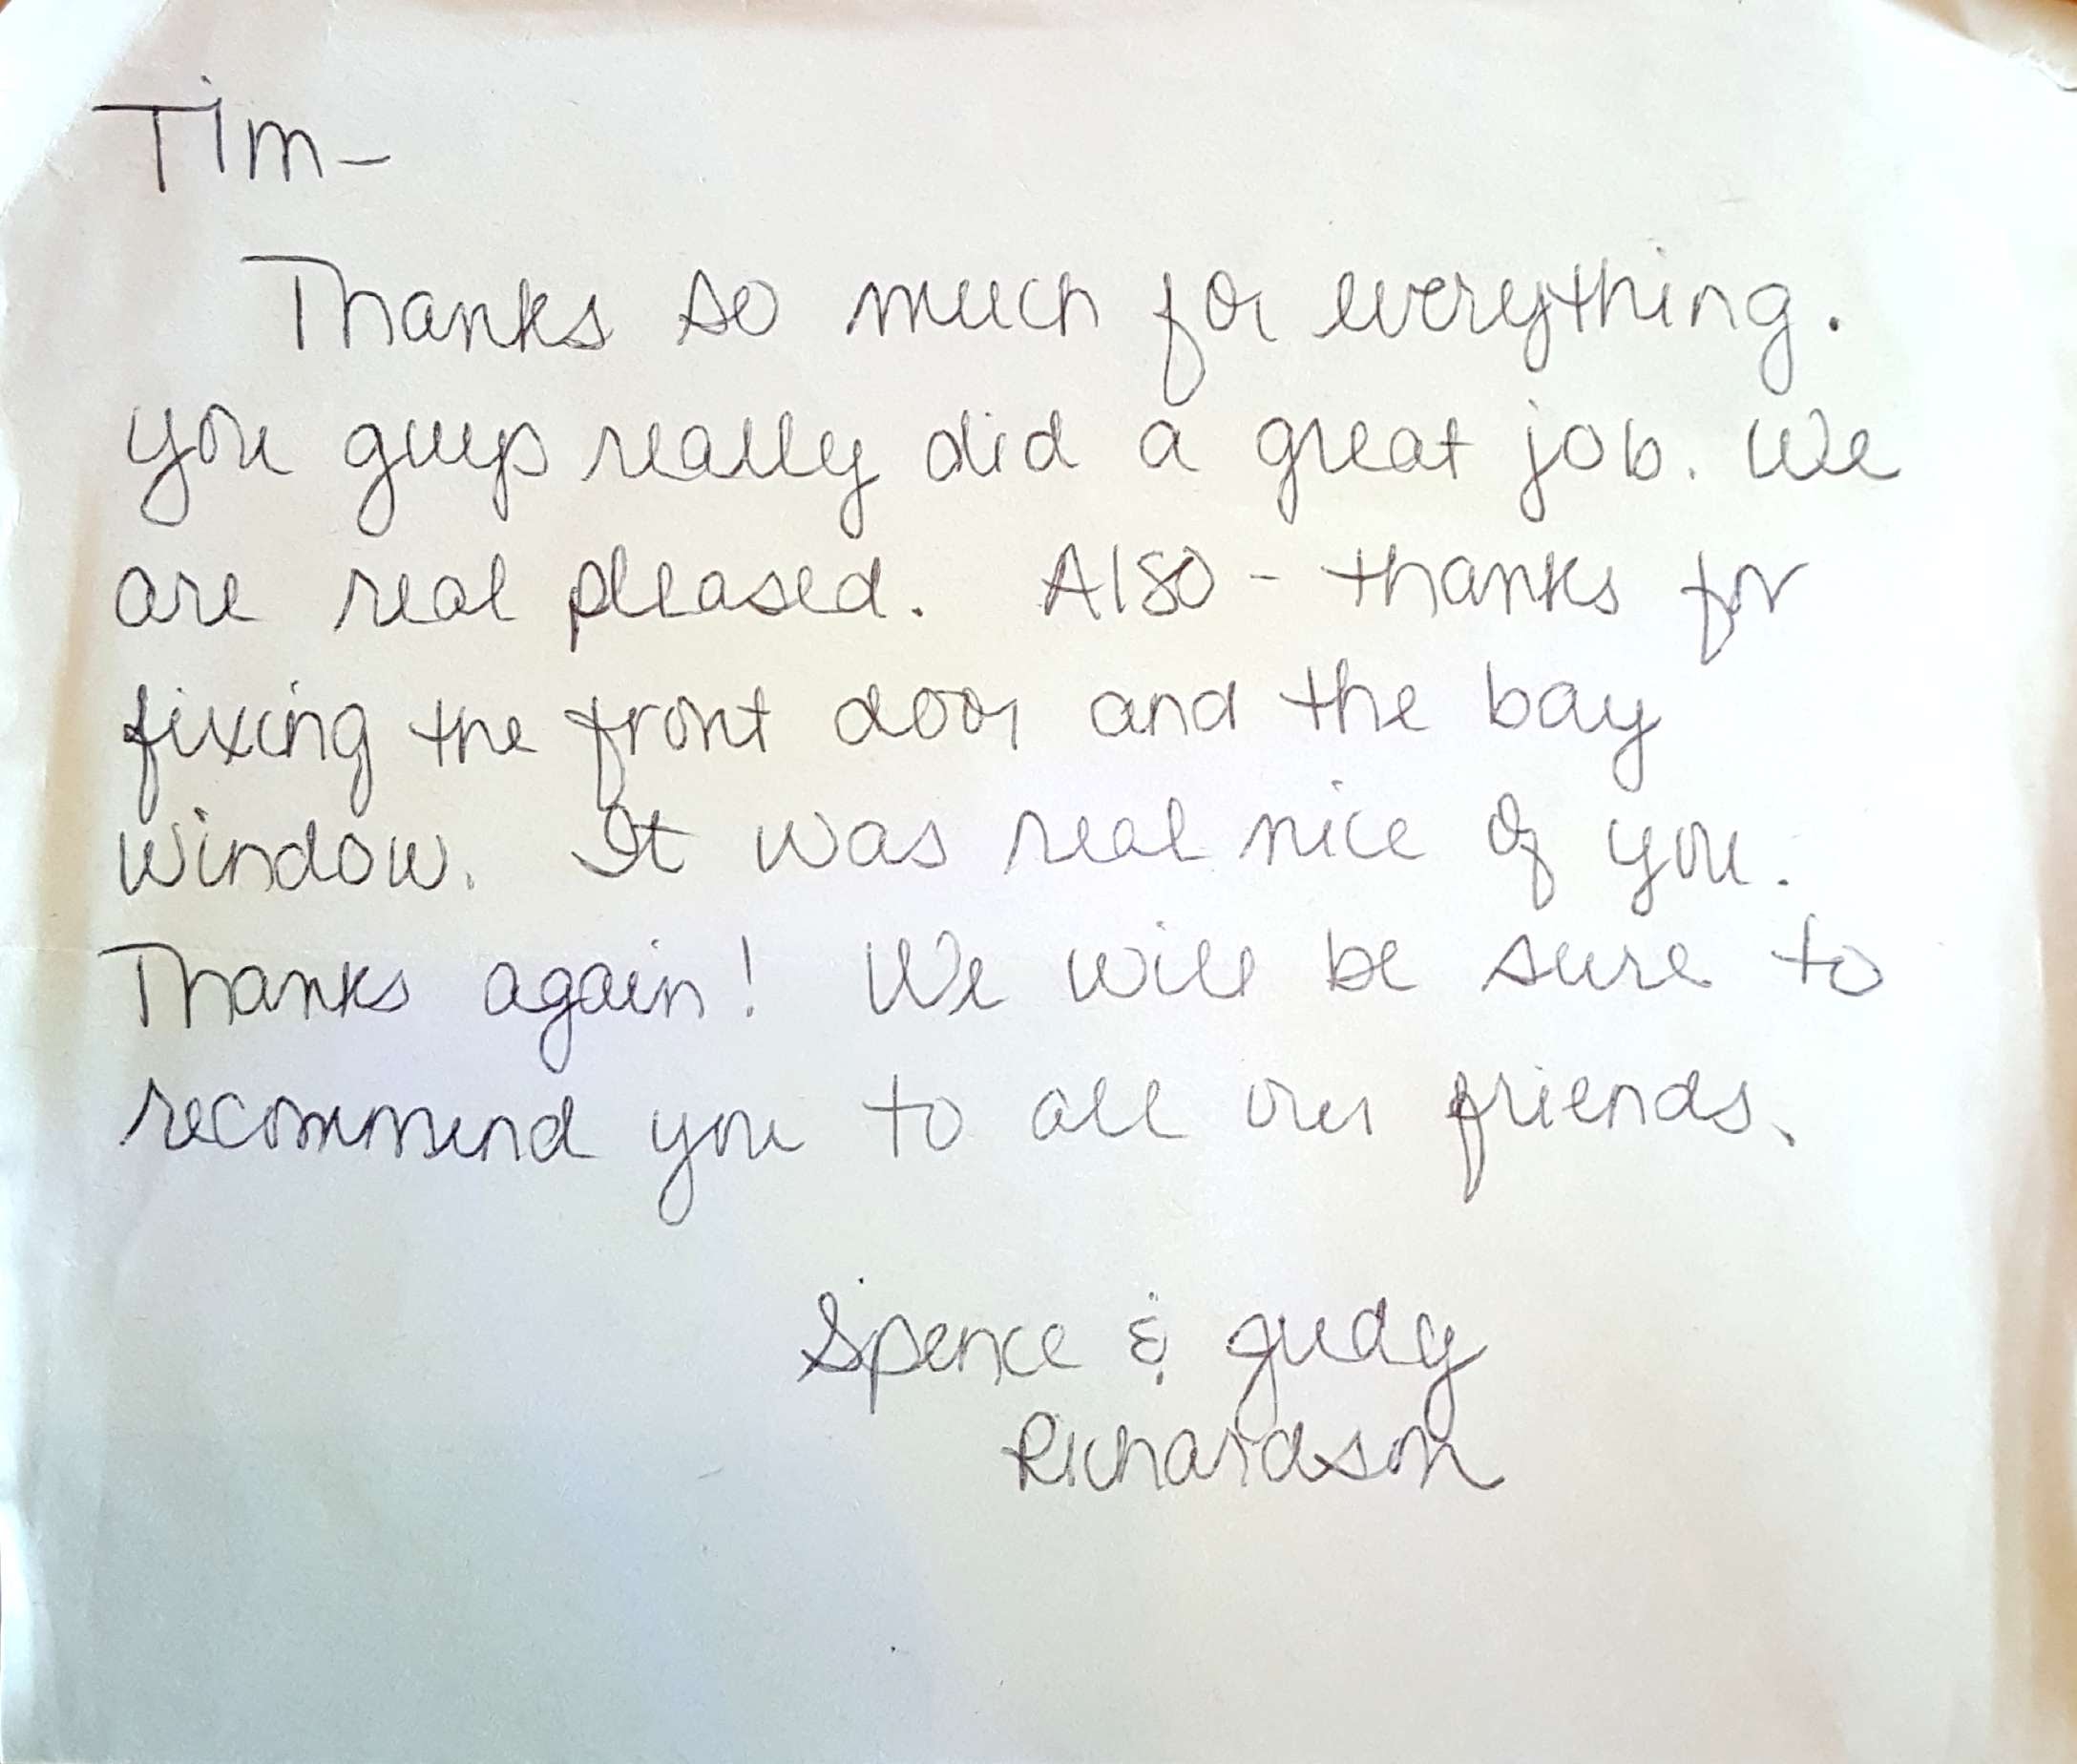 Tim-
Thanks so much for everything.
you guys really did a great job. We
are real pleased. Also - thanks for
fixing the front door and the bay
window. It was real nice of you.
Thanks again! We will be sure to
recommend you to all our friends.
Spence & Judy
Richardson